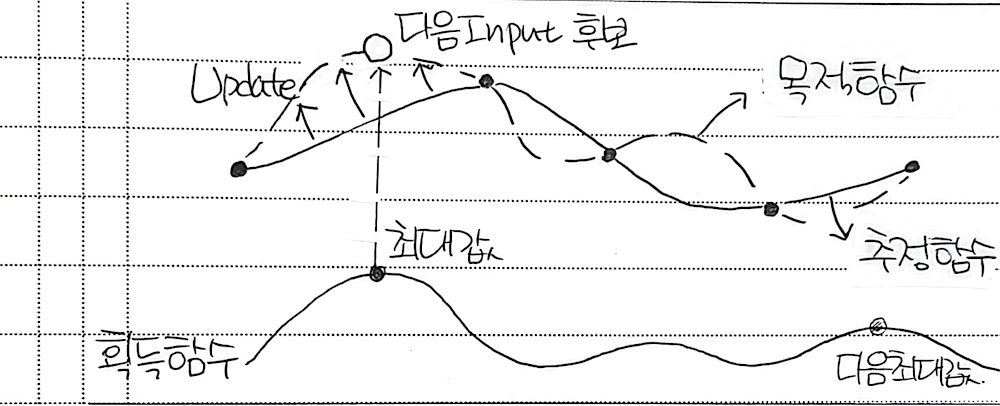 다음Input 후보
Update
목적함수
최대값
추정함수.
획득함수
다음최대값.